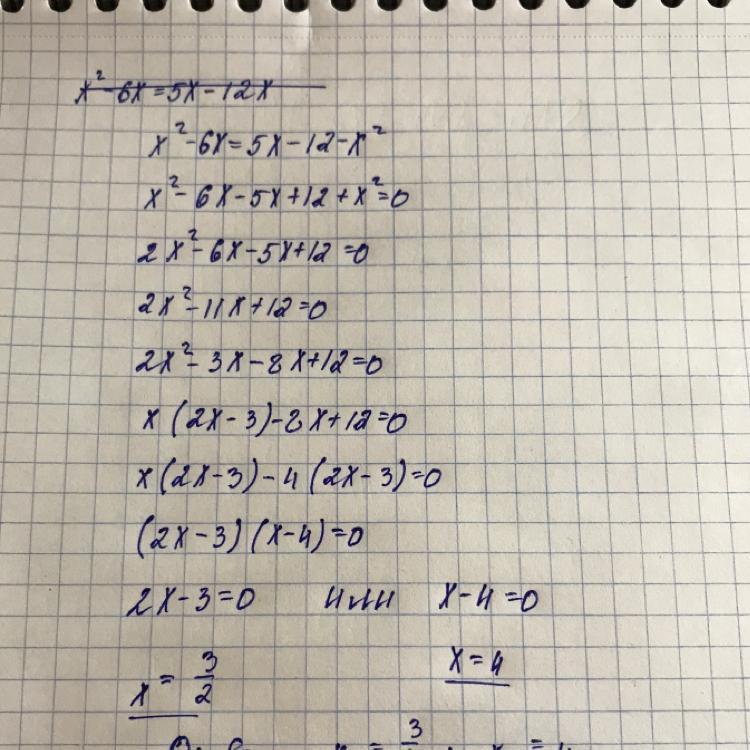 x² - 6x = 5x - 12x
x² - 6x = 5x - 12 - x²
x² - 6x - 5x + 12 + x² = 0
2x² - 6x - 5x + 12 = 0
2x² - 11x + 12 = 0
2x² - 3x - 8x + 12 = 0
x (2x - 3) - 8x + 12 = 0
x (2x - 3) - 4 (2x - 3) = 0
(2x - 3) (x - 4) = 0
2x - 3 = 0 или x - 4 = 0
x = 3/2 x = 4